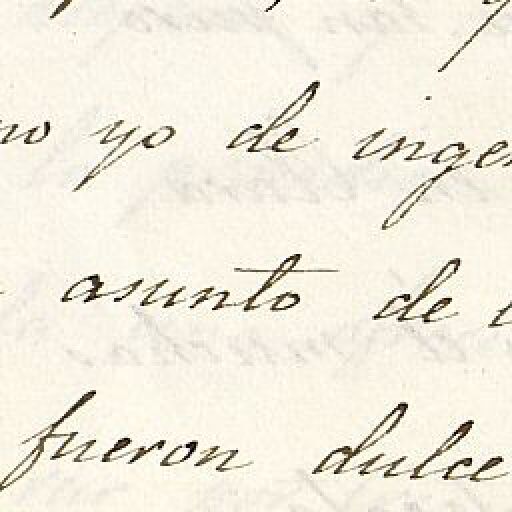 no yo de ingen
asunto de
fueron dulce